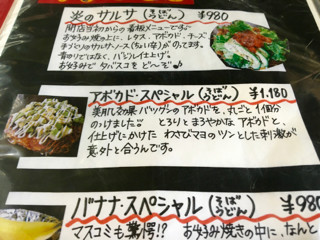 炎のサルサ(そば うどん) ¥980
開店当初からの看板メニューです。
お好み焼の上に、レタス、アボカド、チーズ
手づくりのサルサ・ソース(ちょい辛)がのってます。
昔のりではなく、バジル仕上げ。
お好みで タバスコを ど〜ぞ♪
アボカド・スペシャル(そば うどん) ¥1.180
美肌効果バツグンのアボカドを、丸ごと1個分
のっけました とろりとまろやかなアボカドと、
仕上げにかけた わさびマヨの ツンとした刺激が
意外と合うんです。
バナナ・スペシャル(そば うどん) ¥980
マスコミも驚愕!? お好み焼きの中に、なんと